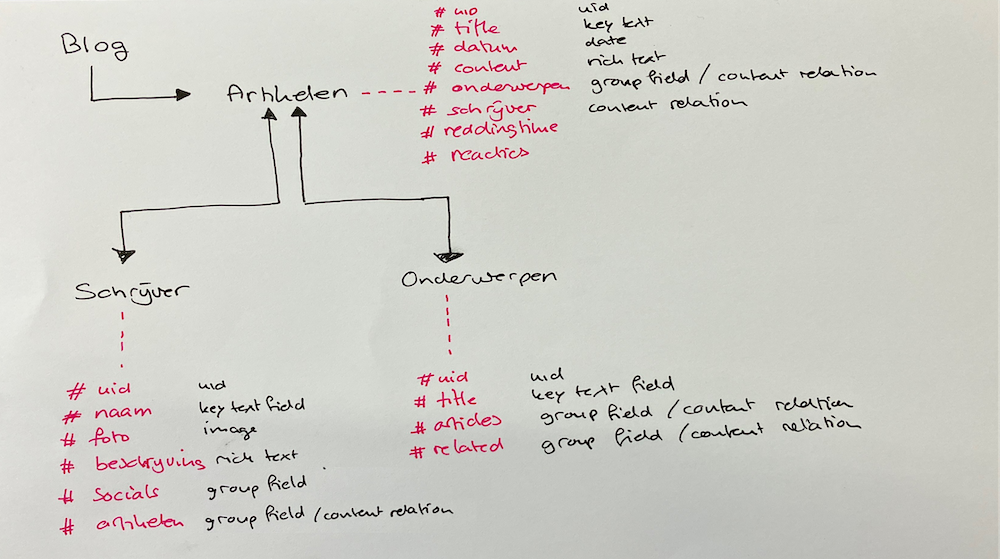 Blog
Artikelen
# uid uid
# title key text
# datum date
# content rich text
# onderwerpen group field / content relation
# schrijver content relation
# readingtime
# reacties
Schrijver
# uid uid
# naam key text field
# foto image
# beschrijving rich text
# socials group field
# artikelen group field / content relation
Onderwerpen
# uid uid
# title key text field
# articles group field / content relation
# related group field / content relation